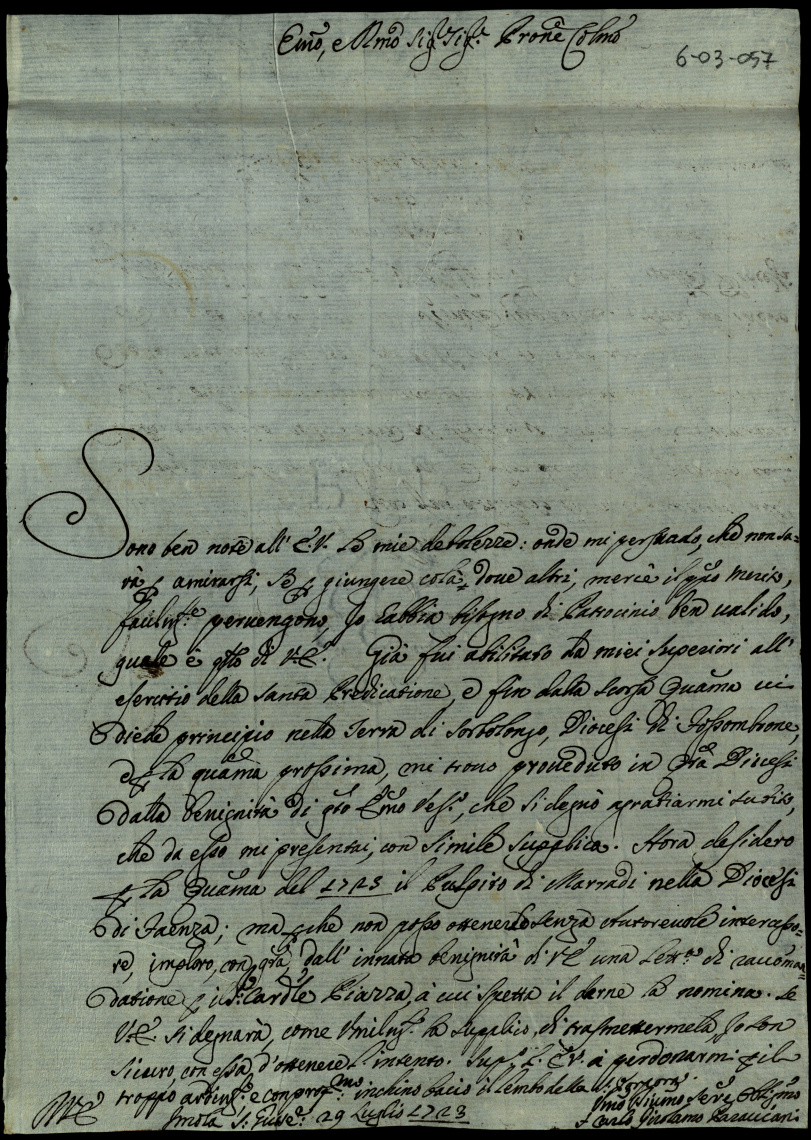 Emo, e Rmo Sigr Sigr Prone Colmo
6-03-057
Sono ben note all' E.V. le mie debolezze: onde mi persuado, che non sa-
rà p amirarsi, se p giungere colà, doue altri, mercè il pro merito,
facilmte peruengono, Jo habbia bisogno di Patrocinio ben ualido,
quale è qto di V.E. Già fui abilitato da miei Superiori all'
esercitio della Santa Predicatione, e fin dalla scorsa Quama ui
diede principio nella Terra di Sorbolongo, Diocesi di Fossombrone,
e p la quama prossima, mi trouo proueduto in qta Diocesi
dalla benignità di qto Emo Vesco, che si degnò agratiarmi subito,
che da esso mi presentai, con simile supplica. Hora desidero
p la Quama del 1725 il Pulpito di Marradi nella Diocesi
di Faenza; ma pche non posso ottenerlo senza Autoreuole intercesso-
re, imploro, con qta, dall' innata benignità di V.E. una Lettra di raccoman-
datione p il Sr Cardle Piazza, à cui spetta il darne la nomina. Se
V.E. si degnarà, come Vmilmte la supplico, di trasmettermela, Jo son
sicuro, con essa, d'ottenere l'intento. Supco l' E.V. à perdonarmi p il
troppo ardire e con profmo inchino bacio il lembo della S. Porpora.
Imola S. Fran 29 Luglio 1723
Vmo Diumo Sere Obligmo
F. Carlo Girolamo